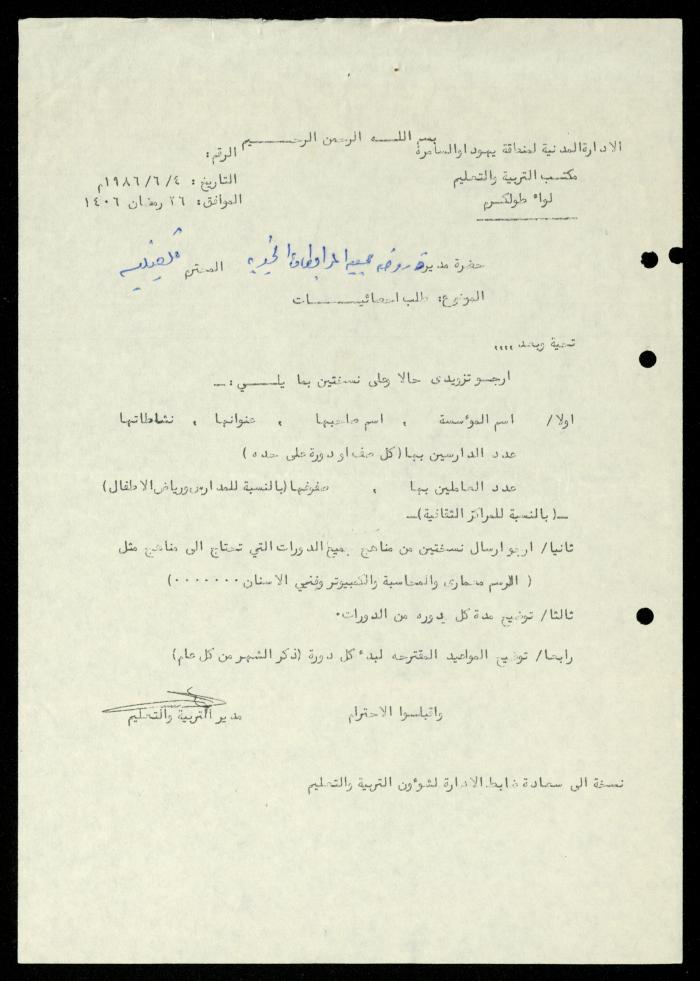 بسم اللـــه الرحمن الرحـــــيم
الادارة المدنية لمنطقة يهودا والسامرة
الرقم:
مكتب التربية والتعليم
التاريخ: ١٩٨٦/٦/٤م
لواء طولكرم
الموافق: ٢٦ رمضان ١٤٠٦
حضرة مديرة روضه جمعية المرابطات الخيريه المحترم قلقيليه
الموضوع: طلب احصائيـــــــات
تحية وبعد ....
ارجو تزويدى حالا وعلى نسختين بما يلـــــي :-
اولا/ اسم المؤسسة , اسم صاحبها , عنوانها , نشاطاتها
عدد الدارسين بها (كل صف او دورة على حده )
عدد العاملين بها , صفوفها (بالنسبة للمدارس ورياض الاطفال)
-(بالنسبة للمراكز الثقافية)-
ثانيا/ ارجو ارسال نسختين من مناهج جميع الدورات التي تحتاج الى مناهج مثل
( الرسم معمارى والمحاسبة والكمبيوتر وفنيي الاسنان ٠٠٠٠٠٠٠)
ثالثا/ توضيح مدة كل يدوره من الدورات٠
رابعا/ توضيح المواعيد المقترحه لبدء كل دورة (ذكر الشهر من كل عام)
واقبلوا الاحترام
مدير التربية والتعليم
نسخة الى سعادة ضابط الادارة لشوءون التربية والتعليم